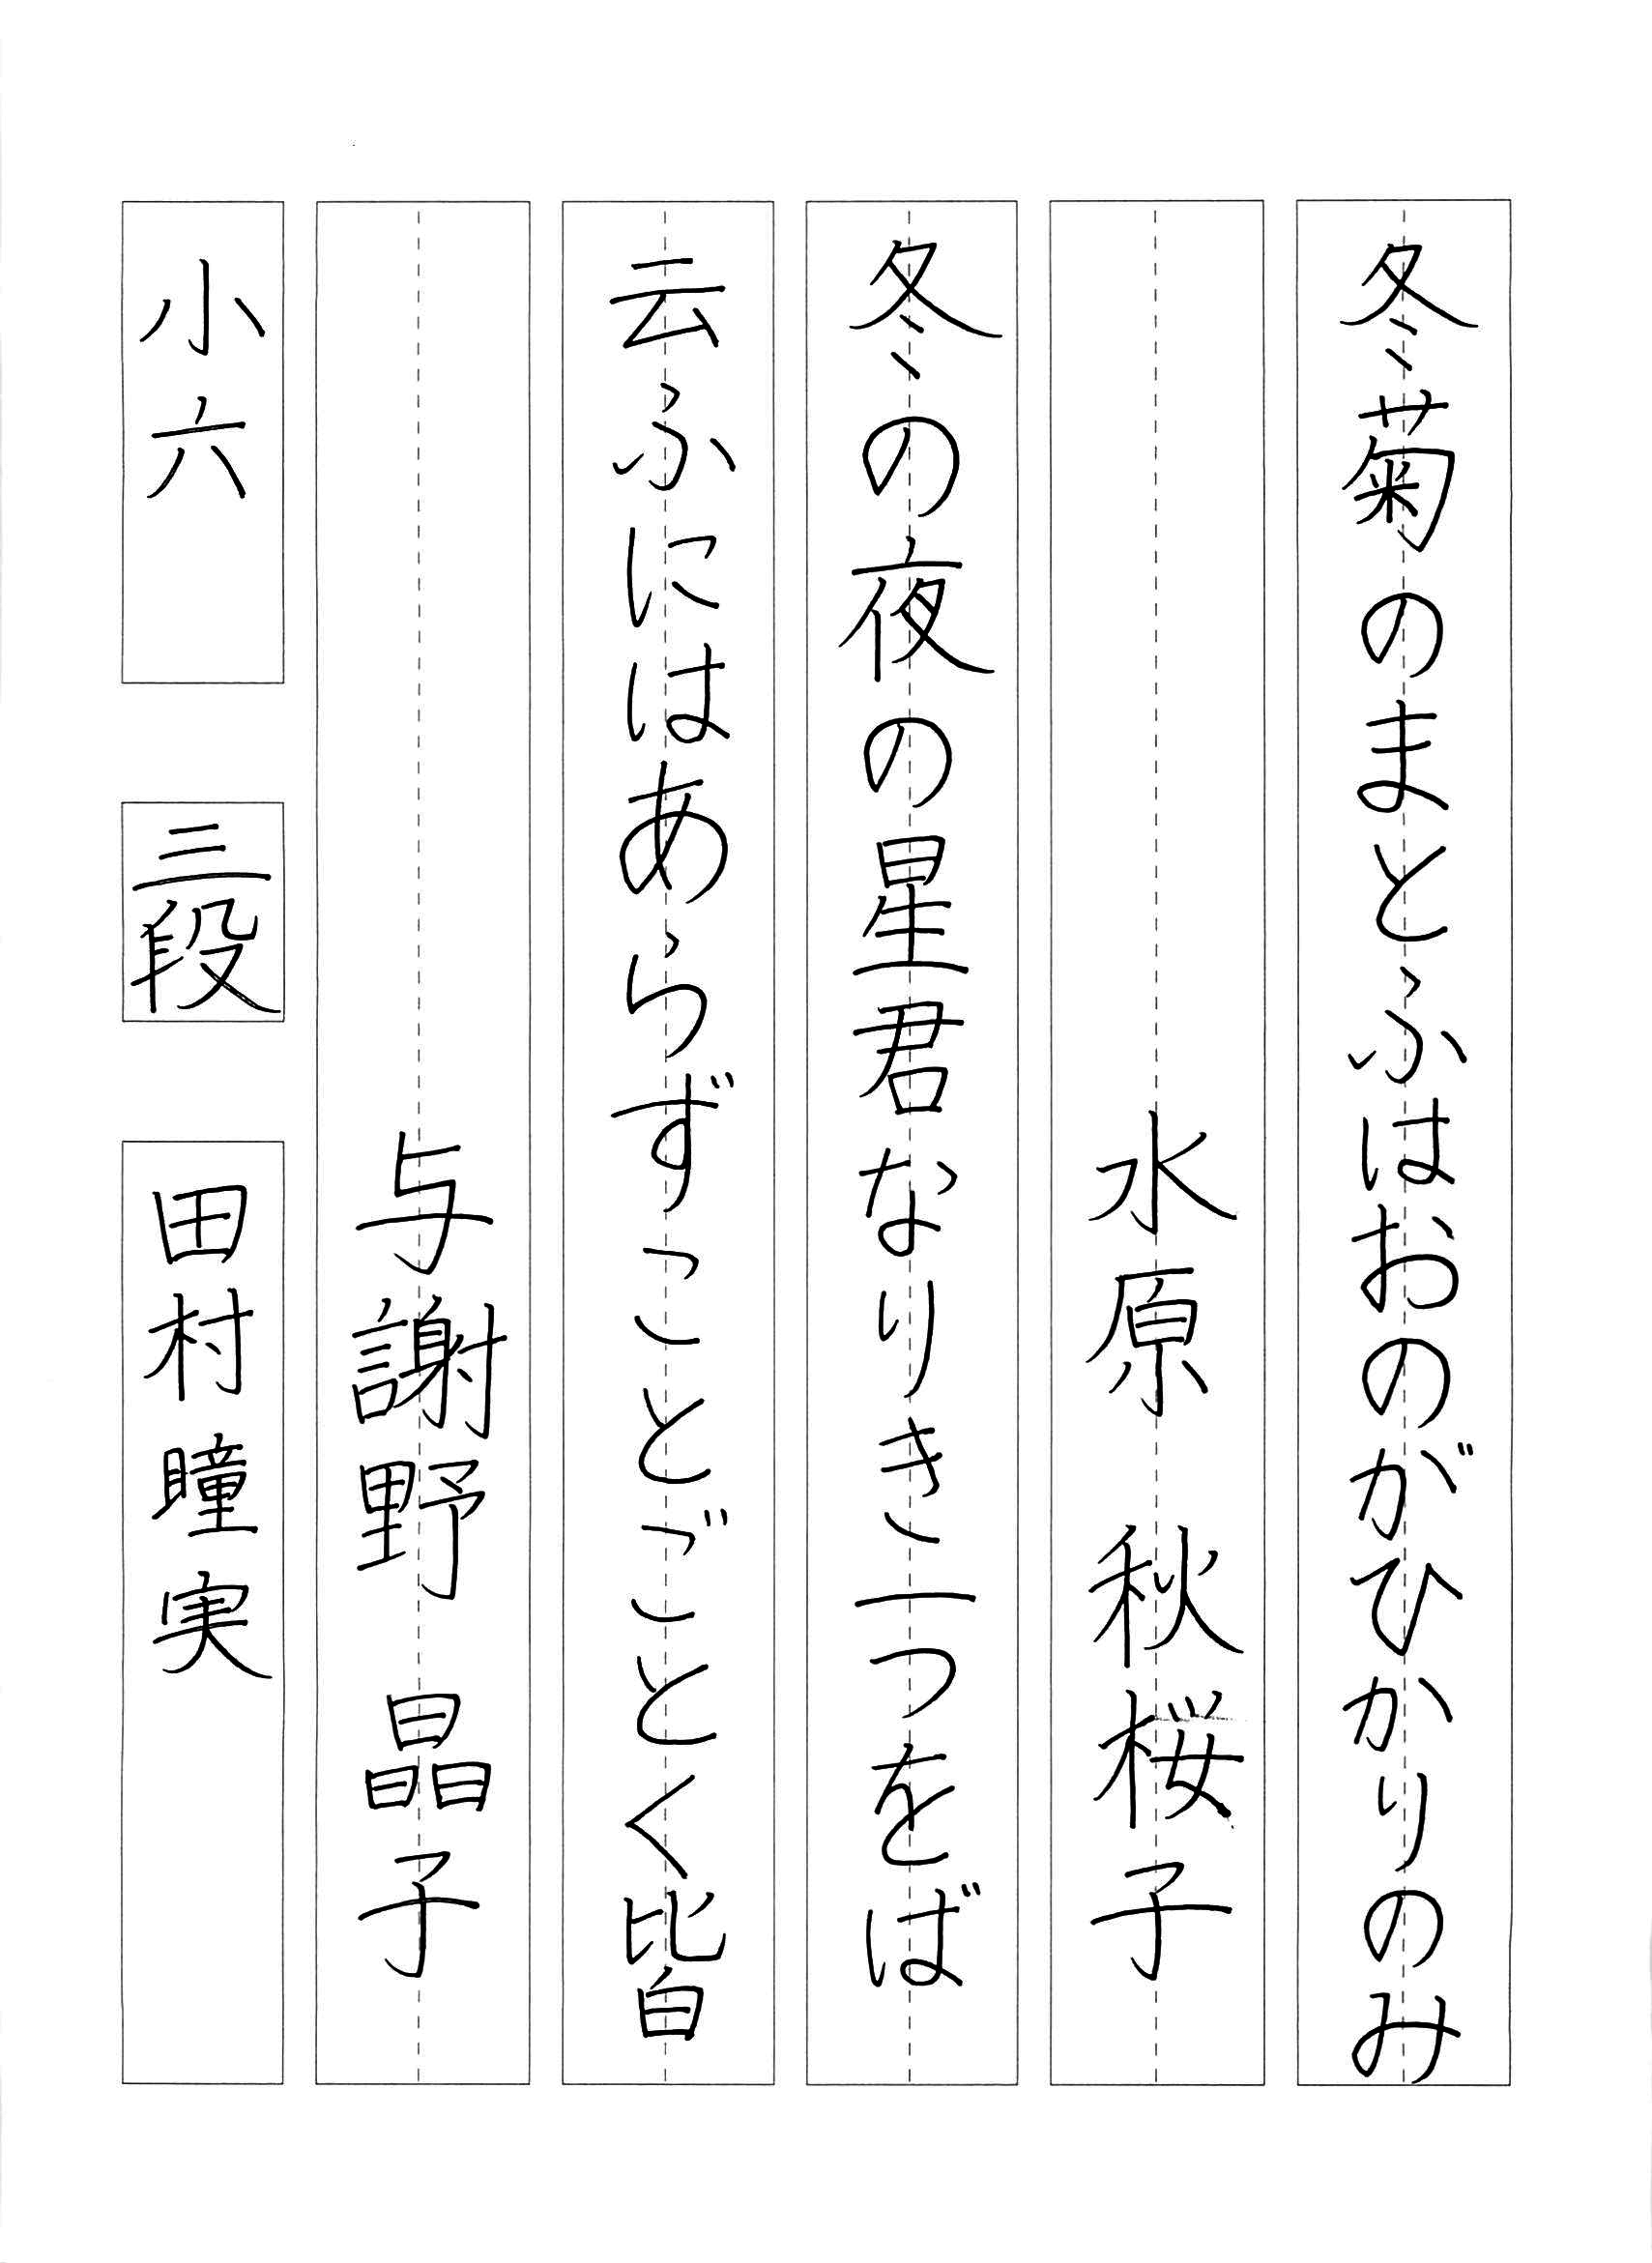 冬菊のまとふはおのがひかりのみ
水原 秋桜子
冬の夜の星君なりき一つをば
云ふにはあらずことごとく皆
与謝野 晶子
小六 三段 田村瞳実